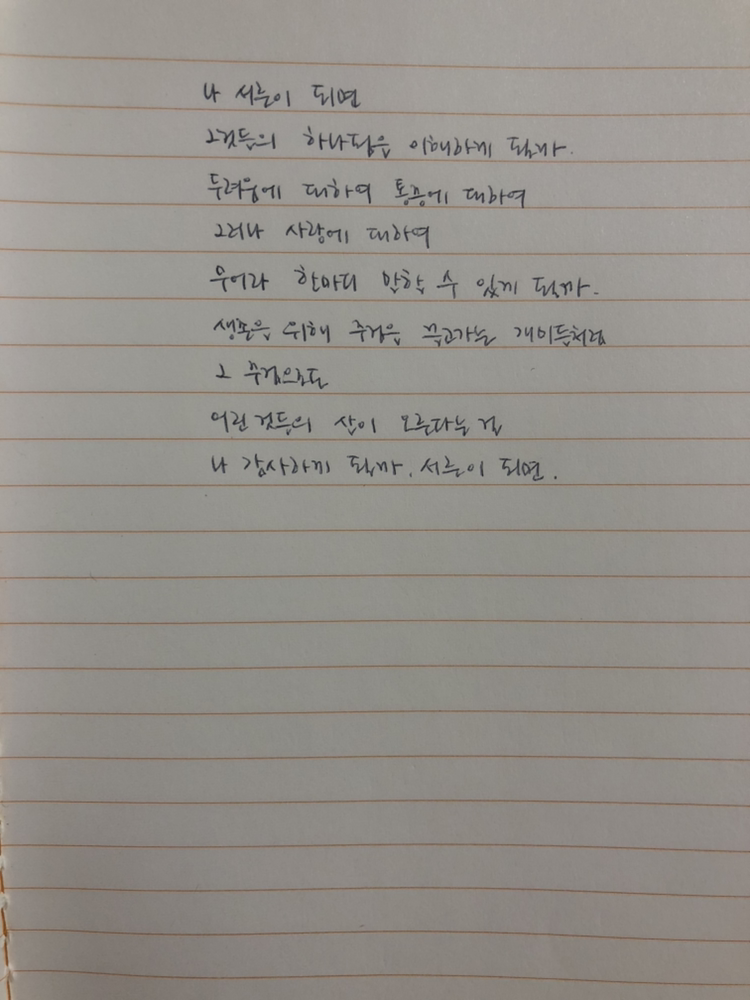 나 서른이 되면
그것들의 하나됨을 이해하게 될까.
두려움에 대하여 통증에 대하여
그러나 사랑에 대하여
무어라 한마디 말할 수 있게 될까.
생존을 위해 주검을 끌고가는 개미들처럼
그 주검으로도
어린 것들의 살이 오른다는 걸
나 감사하게 될까. 서른이 되면.